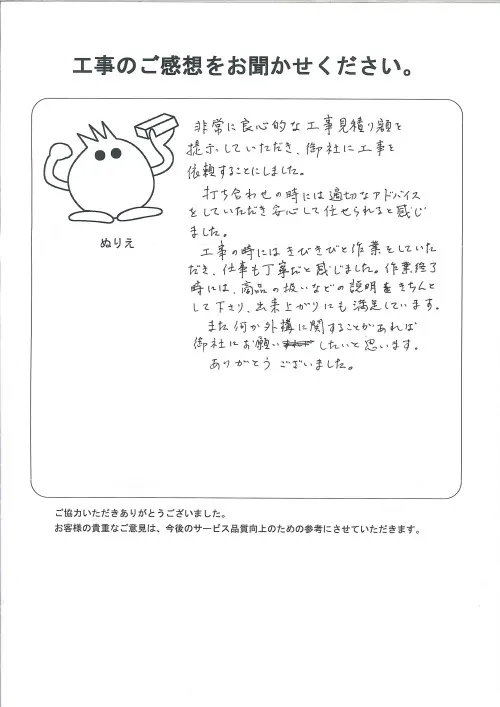 工事のご感想をお聞かせください。
ぬりえ
非常に良心的な工事見積り額を
提示していただき、御社に工事を
依頼することにしました。
打ち合わせの時には適切なアドバイス
をしていただき安心して任せられると感じ
ました。
工事の時にはきびきびと作業をしていた
だき、仕事も丁寧だと感じました。作業終了
時には、商品の扱いなどの説明をきちんと
して下さり、出来上がりにも満足しています。
また何か外構に関することがあれば
御社にお願いしたいと思います。
ありがとうございました。
ご協力いただきありがとうございました。
お客様の貴重なご意見は、今後のサービス品質向上のための参考にさせていただきます。